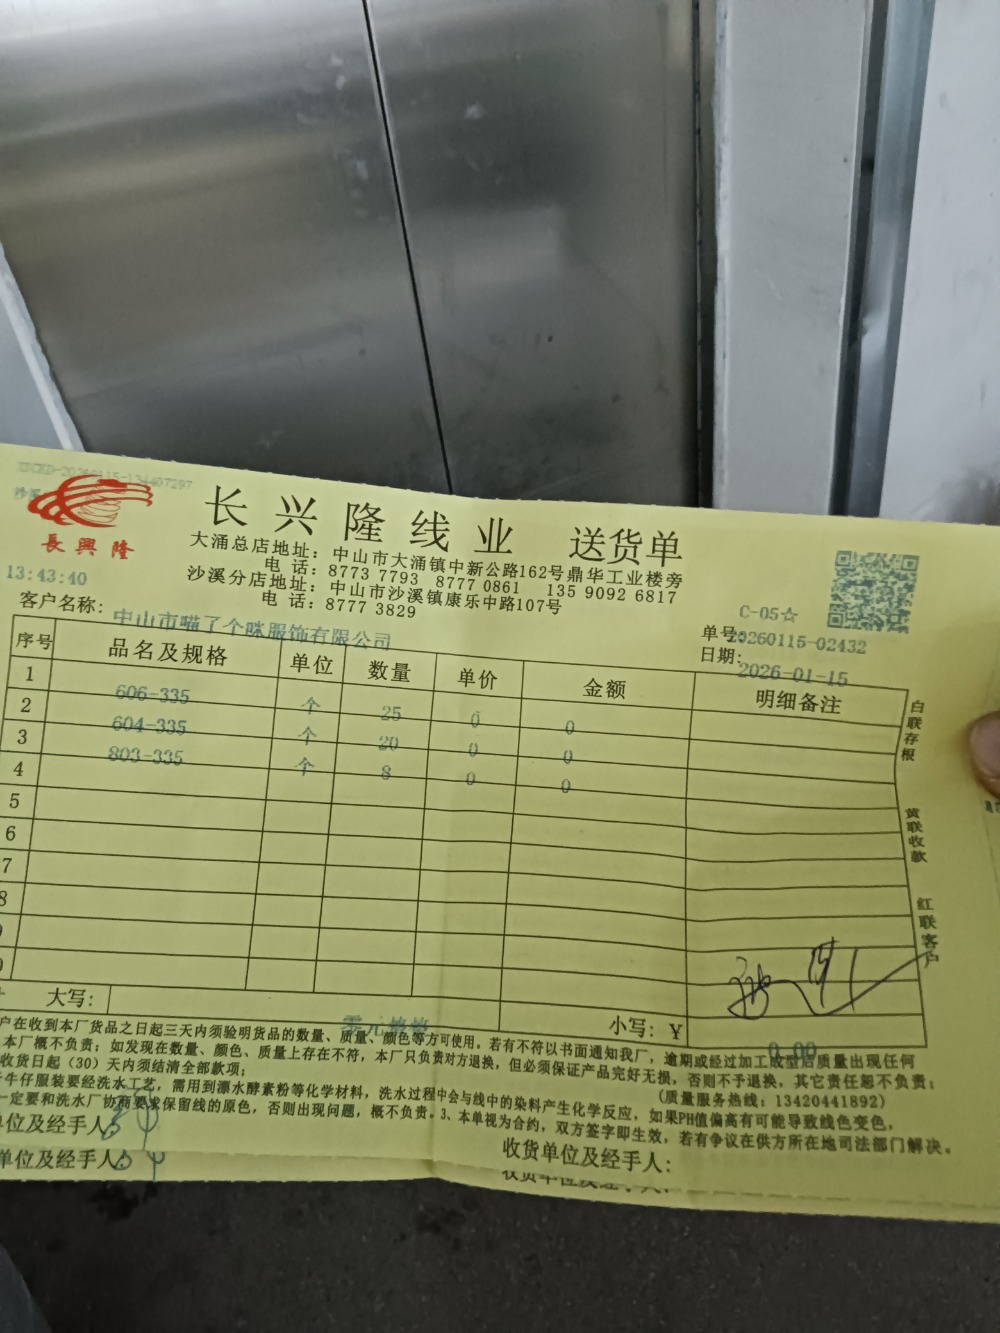 XSCKD-20260115-134407297
沙溪
長興隆
长兴隆线业 送货单
大涌总店地址：中山市大涌镇中新公路162号鼎华工业楼旁
电话：8773 7793 8777 0861 135 9092 6817
沙溪分店地址：中山市沙溪镇康乐中路107号
电话：8777 3829
13:43:40
C-05☆
客户名称：中山市喵了个咪服饰有限公司
单号：20260115-02432
日期：2026-01-15
序号 品名及规格 单位 数量 单价 金额 明细备注
1 606-335 个 25 0 0
2 604-335 个 20 0 0
3 803-335 个 8 0 0
4
5
6
7
8
白联存根
黄联收款
红联客户
大写：零元
小写：¥ 0.00
户在收到本厂货品之日起三天内须验明货品的数量、质量、颜色等方可使用。若有不符以书面通知我厂，逾期或经过加工成型后质量出现任何
本厂概不负责；如发现在数量、颜色、质量上存在不符，本厂只负责对方退换，但必须保证产品完好无损，否则不予退换，其它责任恕不负责；
收货日起（30）天内须结清全部款项；
（质量服务热线：13420441892）
牛仔服装要经洗水工艺，需用到漂水酵素粉等化学材料，洗水过程中会与线中的染料产生化学反应，如果PH值偏高有可能导致线色变色，
一定要和洗水厂协商要求保留线的原色，否则出现问题，概不负责。3、本单视为合约，双方签字即生效，若有争议在供方所在地司法部门解决。
单位及经手人：
收货单位及经手人：
单位及经手人：
收货单位及经手人：